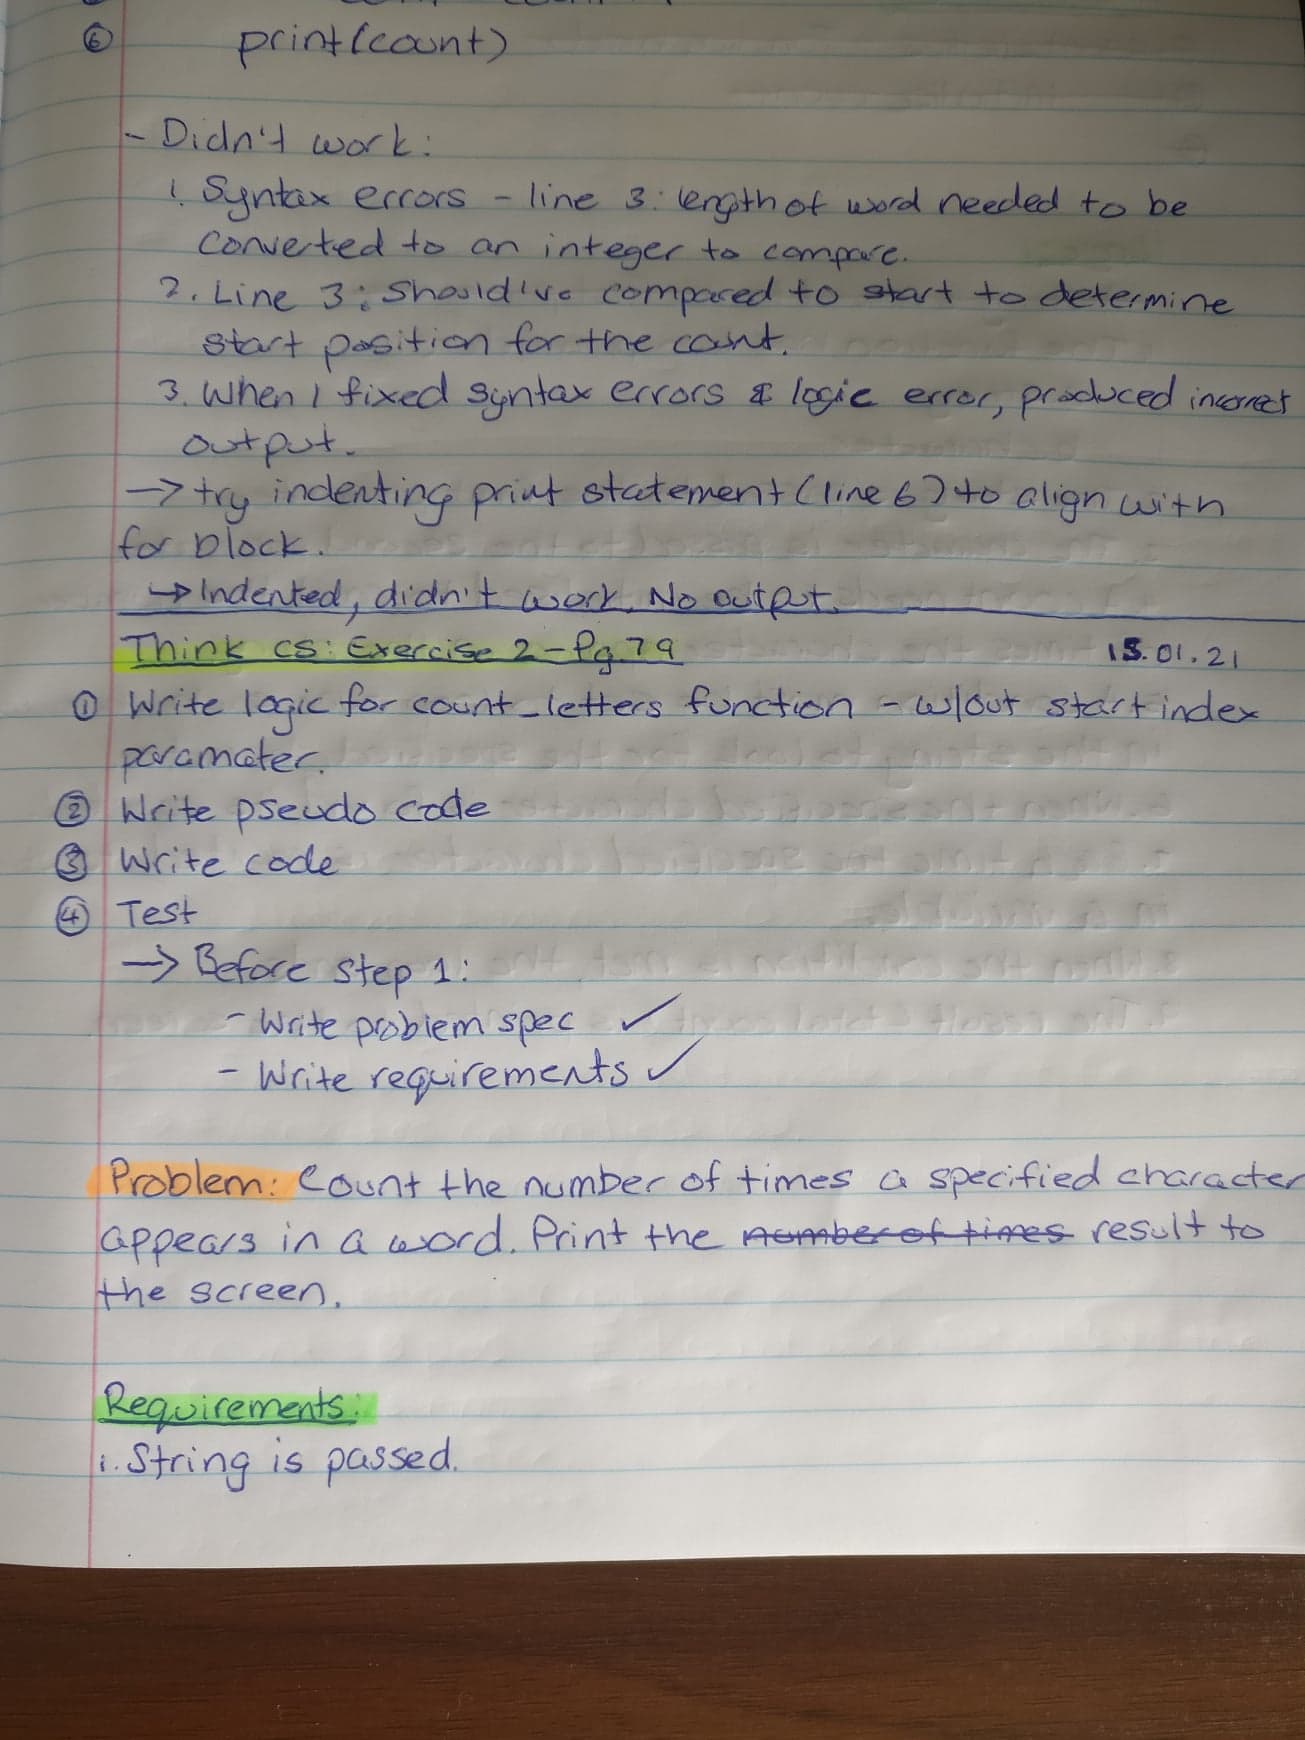 6 print(count)
- Didn't work:
1. Syntax errors - line 3: length of word needed to be
converted to an integer to compare.
2. Line 3: Should've compared to start to determine
start position for the count.
3. When I fixed syntax errors & logic error, produced incorrect
output.
→ try indenting print statement (line 6) to align with
for block.
→ Indented, didn't work. No output.
Think CS: Exercise 2 - Pg. 79 15.01.21
1 Write logic for count_letters function - w/out start index
paramater.
2 Write pseudo code
3 Write code
4 Test
→ Before step 1:
- Write problem spec ✓
- Write requirements ✓
Problem: Count the number of times a specified character
appears in a word. Print the number of times result to
the screen.
Requirements:
1. String is passed.